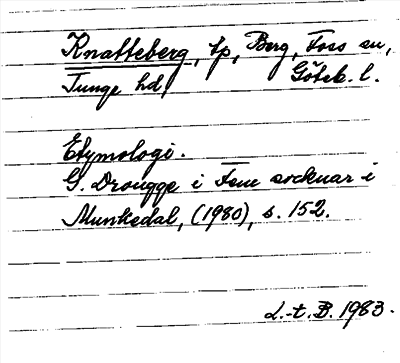 Knatteberg, tp, Berg, Foss sn,
Tunge hd, Göteb. l.
Etymologi.
G. Drougge i Fem socknar i
Munkedal, (1980), s. 152.
L.-t. B. 1983.